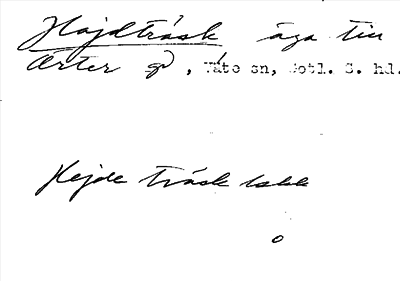 Hajdträsk äga till
Arter gd, Väte sn, Gotl. S. hd.
Hejde träsk lakk